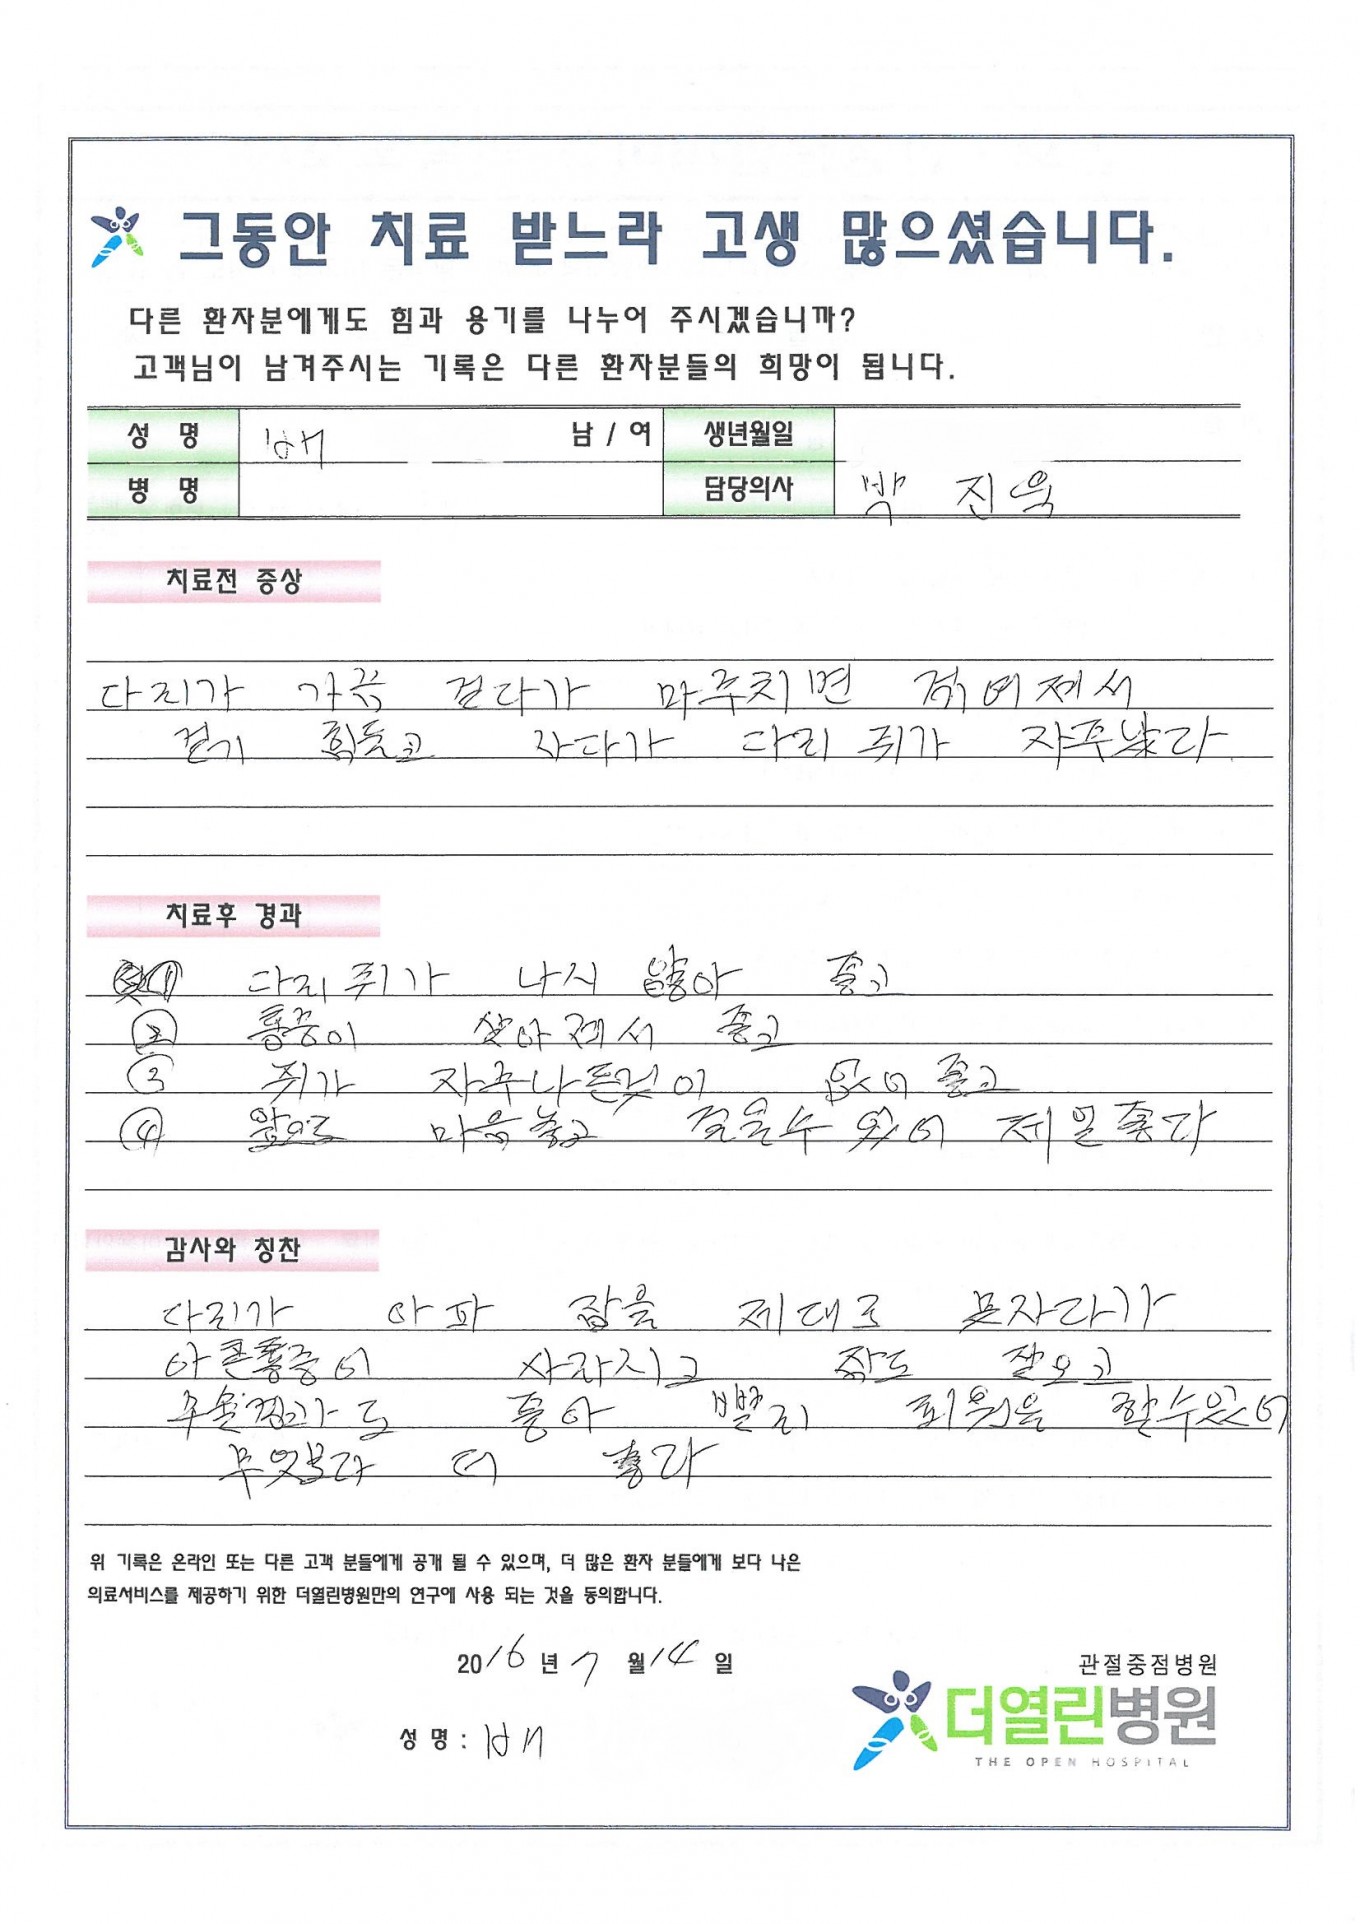 그동안 치료 받느라 고생 많으셨습니다.
다른 환자분에게도 힘과 용기를 나누어 주시겠습니까?
고객님이 남겨주시는 기록은 다른 환자분들의 희망이 됩니다.
성 명 배 남 / 여 생년월일
병 명 담당의사 박 진욱
치료전 증상
다리가 가끔 걷다가 마주치면 적어제서
걷기 힘들고 자다가 다리 쥐가 자주났다
치료후 경과
① 다리 쥐가 나지 않아 좋고
② 통증이 살아제서 좋고
③ 쥐가 자주나든것이 없어 좋고
④ 앞으로 마음놓고 걸을수 있어 제일좋다
감사와 칭찬
다리가 아파 잠을 제대로 못자다가
아픈통증이 사라지고 잠도 잘오고
수술경과도 좋아 빨리 퇴원을 할수있어
무엇보다 더 좋다
위 기록은 온라인 또는 다른 고객 분들에게 공개 될 수 있으며, 더 많은 환자 분들에게 보다 나은
의료서비스를 제공하기 위한 더열린병원만의 연구에 사용 되는 것을 동의합니다.
2016년 7월 14일
성 명 : 배
관절중점병원
더열린병원
THE OPEN HOSPITAL